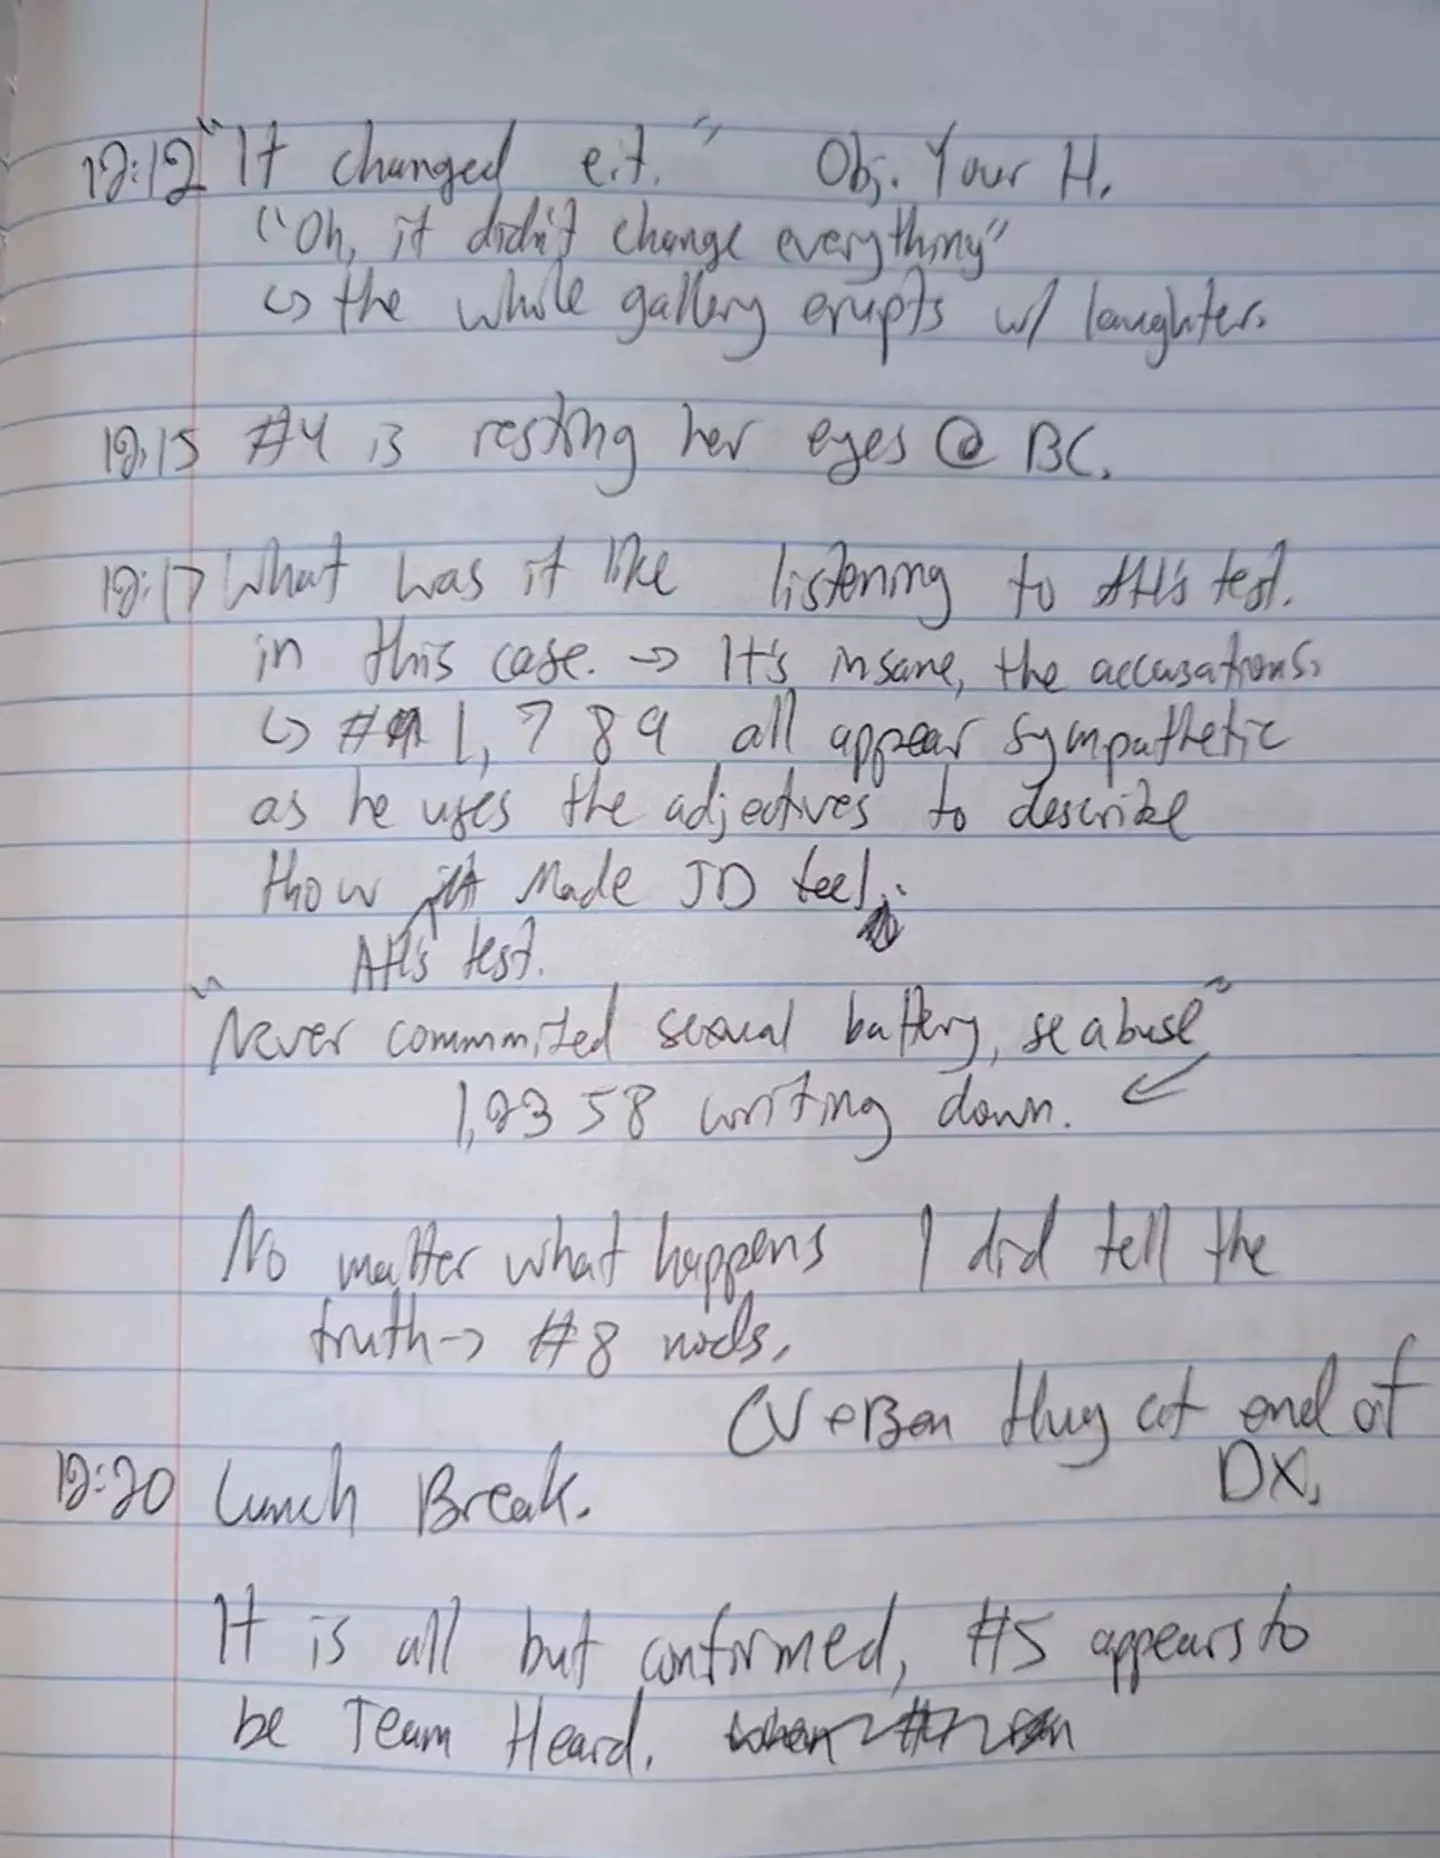 12:12 "It changed e.t." Obj. Your H.
("Oh, it didn't change everything"
↳ the whole gallery erupts w/ laughter.
12:15 #4 is resting her eyes @ BC.
12:17 What was it like listening to AH's test.
in this case. → It's insane, the accusations.
↳ # 1, 7 8 9 all appear sympathetic
as he uses the adjectives to describe
how it made JD feel.
AH's test.
"Never commmited sexual battery, se abuse"
1, 2 3 5 8 writing down.
No matter what happens I did tell the
truth → #8 nods.
CV + Ben Hug at end of
DX.
12:20 Lunch Break.
It is all but confirmed, #5 appears to
be Team Heard.